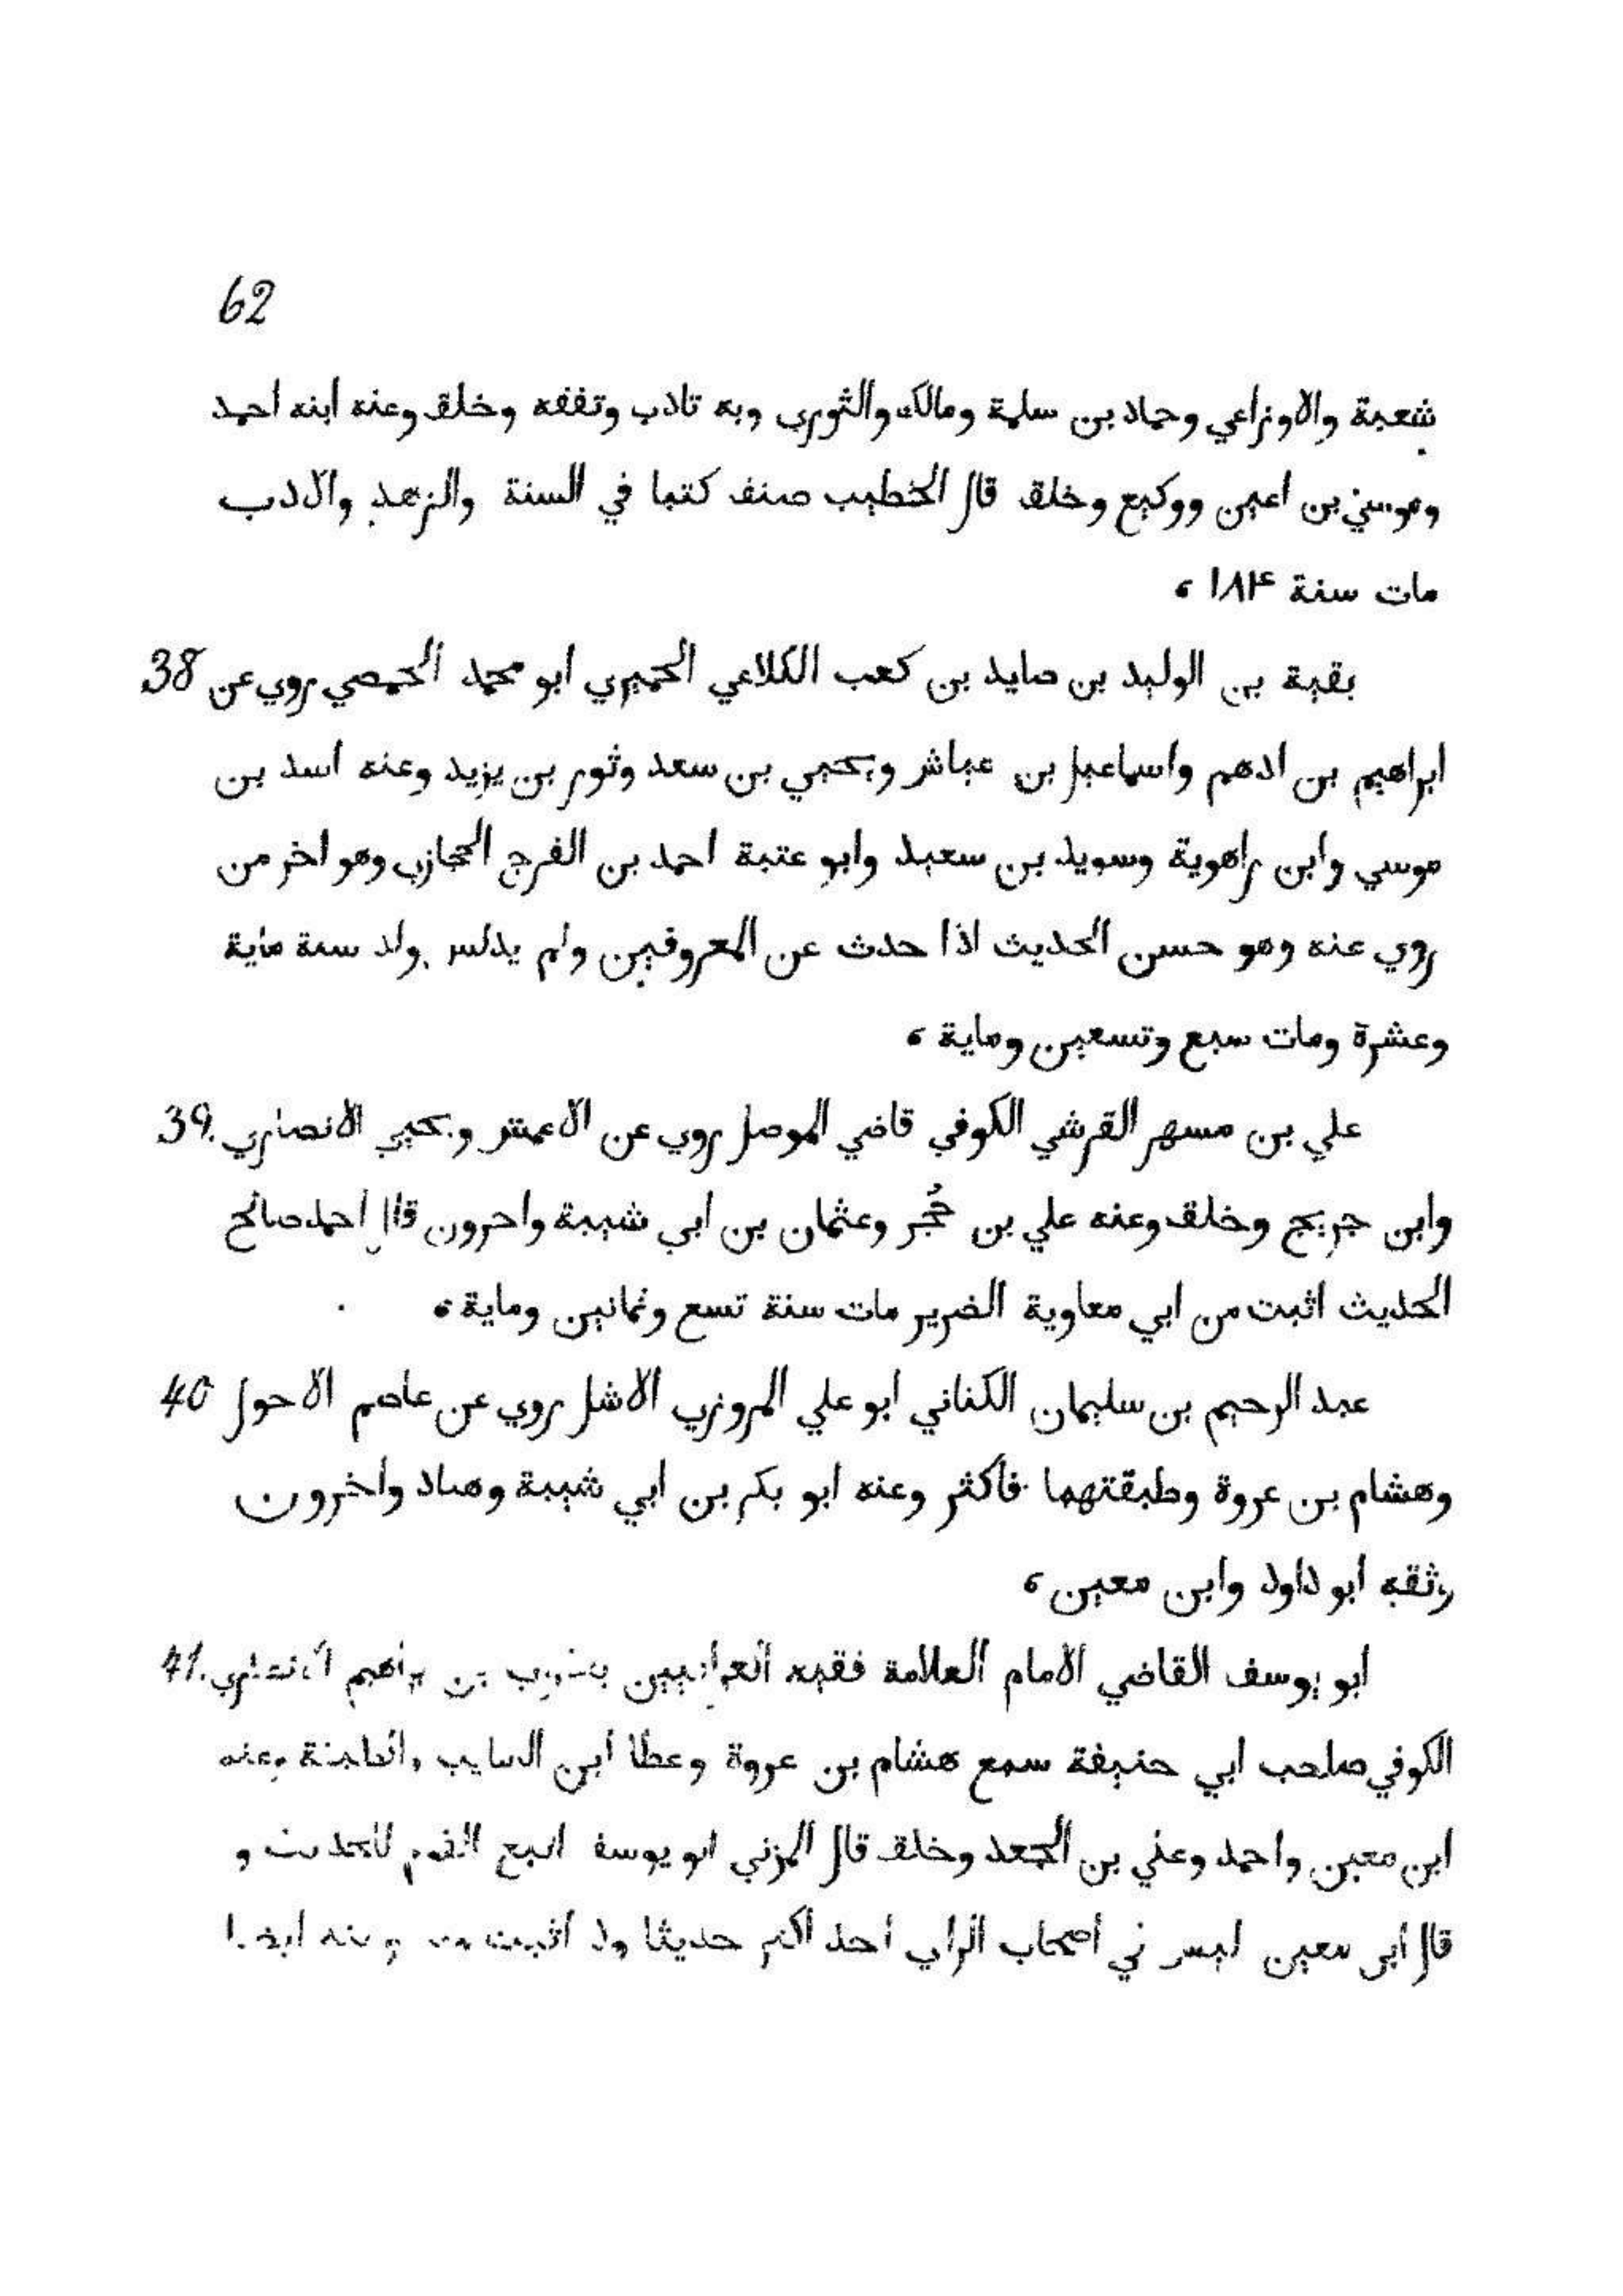 62
شعبة والاوزاعي وحماد بن سلمة ومالك والثوري وبه تادب وتفقه وخلق وعنه ابنه احمد
وموسي بن اعين ووكيع وخلق قال الخطيب صنف كتبا في السنة والزهد والادب
مات سنة ١٨۴ ،
بقية بن الوليد بن صايد بن كعب الكلاعي الحميري ابو محمد الحمصي روي عن 38
ابراهيم بن ادهم واسماعيل بن عياش ويحيي بن سعد وثور بن يزيد وعنه اسد بن
موسي وابن راهوية وسويد بن سعيد وابو عتبة احمد بن الفرج الحجازي وهو اخر من
روي عنه وهو حسن الحديث اذا حدث عن المعروفين ولم يدلس ولد سنة ماية
وعشرة ومات سبع وتسعين وماية ،
علي بن مسهر القرشي الكوفي قاضي الموصل روي عن الاعمش ويحيي الانصاري .39
وابن جريج وخلق وعنه علي بن حُجر وعثمان بن ابي شيبة واخرون قال احمد صالح
الحديث اثبت من ابي معاوية الضرير مات سنة تسع وثمانين وماية ،
عبد الرحيم بن سليمان الكناني ابو علي المروزي الاشل روي عن عاصم الاحول 40
وهشام بن عروة وطبقتهما فاكثر وعنه ابو بكر بن ابي شيبة وهناد واخرون
وثقه ابو داود وابن معين ،
ابو يوسف القاضي الامام العلامة فقيه العراقيين يعقوب بن براهيم الانصاري .41
الكوفي صاحب ابي حنيفة سمع هشام بن عروة وعطا ابن السايب والطبقة وعنه
ابن معين واحمد وعلي بن الجعد وخلق قال المزني ابو يوسف اتبع القوم للحديث و
قال ابن معين ليس في اصحاب الراي احد اكثر حديثا ولا اثبت منه وعنه ايضا